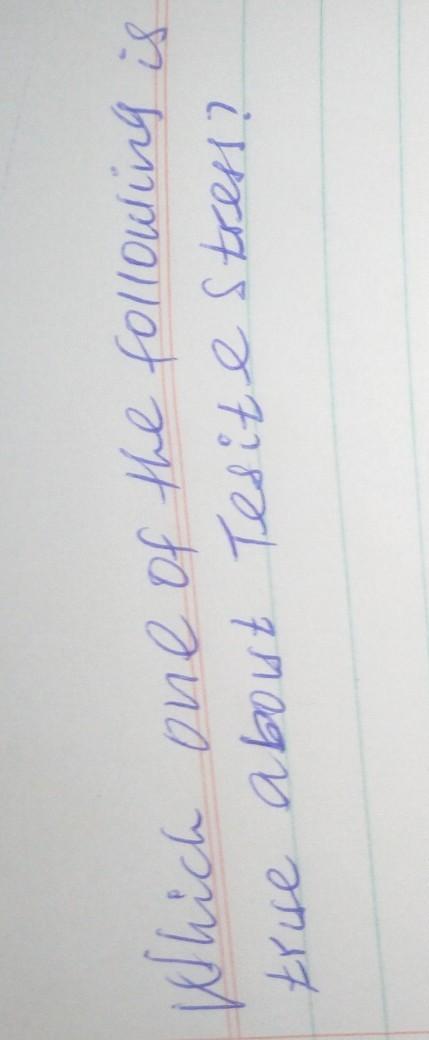 Which one of the following is
true about Tesite stress?